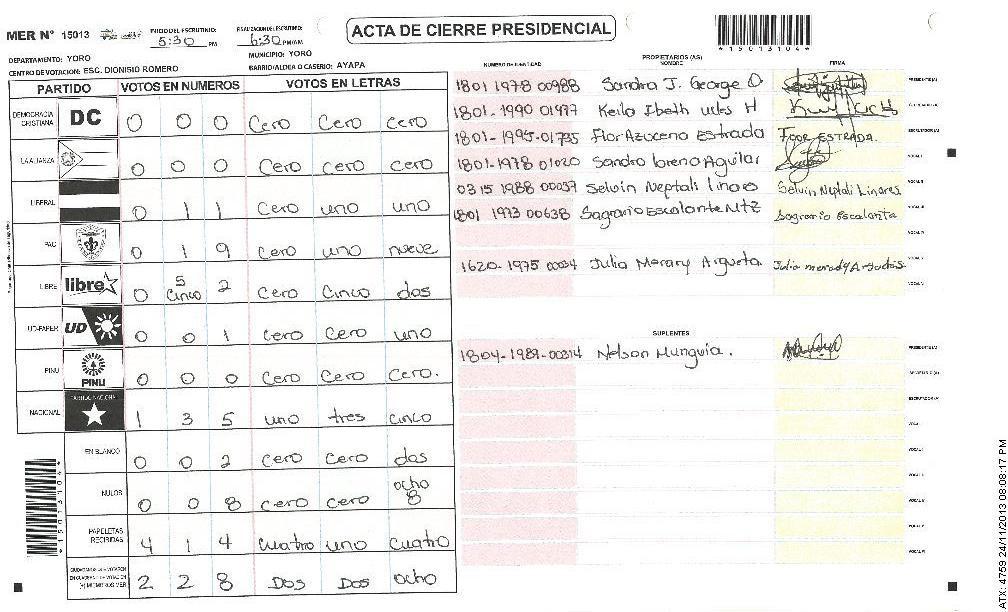 ACTA DE CIERRE PRESIDENCIAL
MER N° 15013
INICIO DEL ESCRUTINIO: 5:30 PM
FINALIZACION DEL ESCRUTINIO: 6:30 PM/AM
*15013104*
DEPARTAMENTO: YORO
MUNICIPIO: YORO
CENTRO DE VOTACION: ESC. DIONISIO ROMERO
BARRIO/ALDEA O CASERIO: AYAPA
PARTIDO VOTOS EN NUMEROS VOTOS EN LETRAS
DEMOCRACIA CRISTIANA DC 0 0 0 Cero Cero cero
LA ALIANZA 0 0 0 Cero Cero Cero
LIBERAL 0 1 1 Cero uno uno
PAC 0 1 9 Cero uno nueve
LIBRE libre 0 5 cinco 2 Cero Cinco dos
UD-FAPER UD 0 0 1 Cero Cero uno
PINU PINU 0 0 0 Cero Cero Cero.
NACIONAL PARTIDO NACIONAL 1 3 5 uno tres cinco
EN BLANCO 0 0 2 Cero Cero dos
NULOS 0 0 8 Cero Cero ocho 8
PAPELETAS RECIBIDAS 4 1 4 Cuatro uno cuatro
2 2 8 Dos Dos ocho
*15013104*
PROPIETARIOS (AS)
NUMERO DE IDENTIDAD NOMBRE FIRMA
1801 1978 00988 Sandra J. George O PRESIDENTE(A)
1801-1990 01977 Keila Ibeth H
1801-1995-01735 Flor Azucena Estrada Flor ESTRADA. ESCRUTADOR(A)
1801-1978 01020 Sandra Lorena Aguilar VOCAL I
0315 1988 00037 Selvin Neptali Linares Selvin Neptali Linares VOCAL II
1801 1973 00638 Sagrario Escalante Mtz Sagrario Escalante VOCAL III
VOCAL IV
1620-1975 00034 Julia Merary Argueta Julia VOCAL V
SUPLENTES
1804-1989-00314 Nelson Munguia. PRESIDENTE(A)
SECRETARIO(A)
ESCRUTADOR(A)
ATX: 4759 24/11/2013 08:08:17 PM